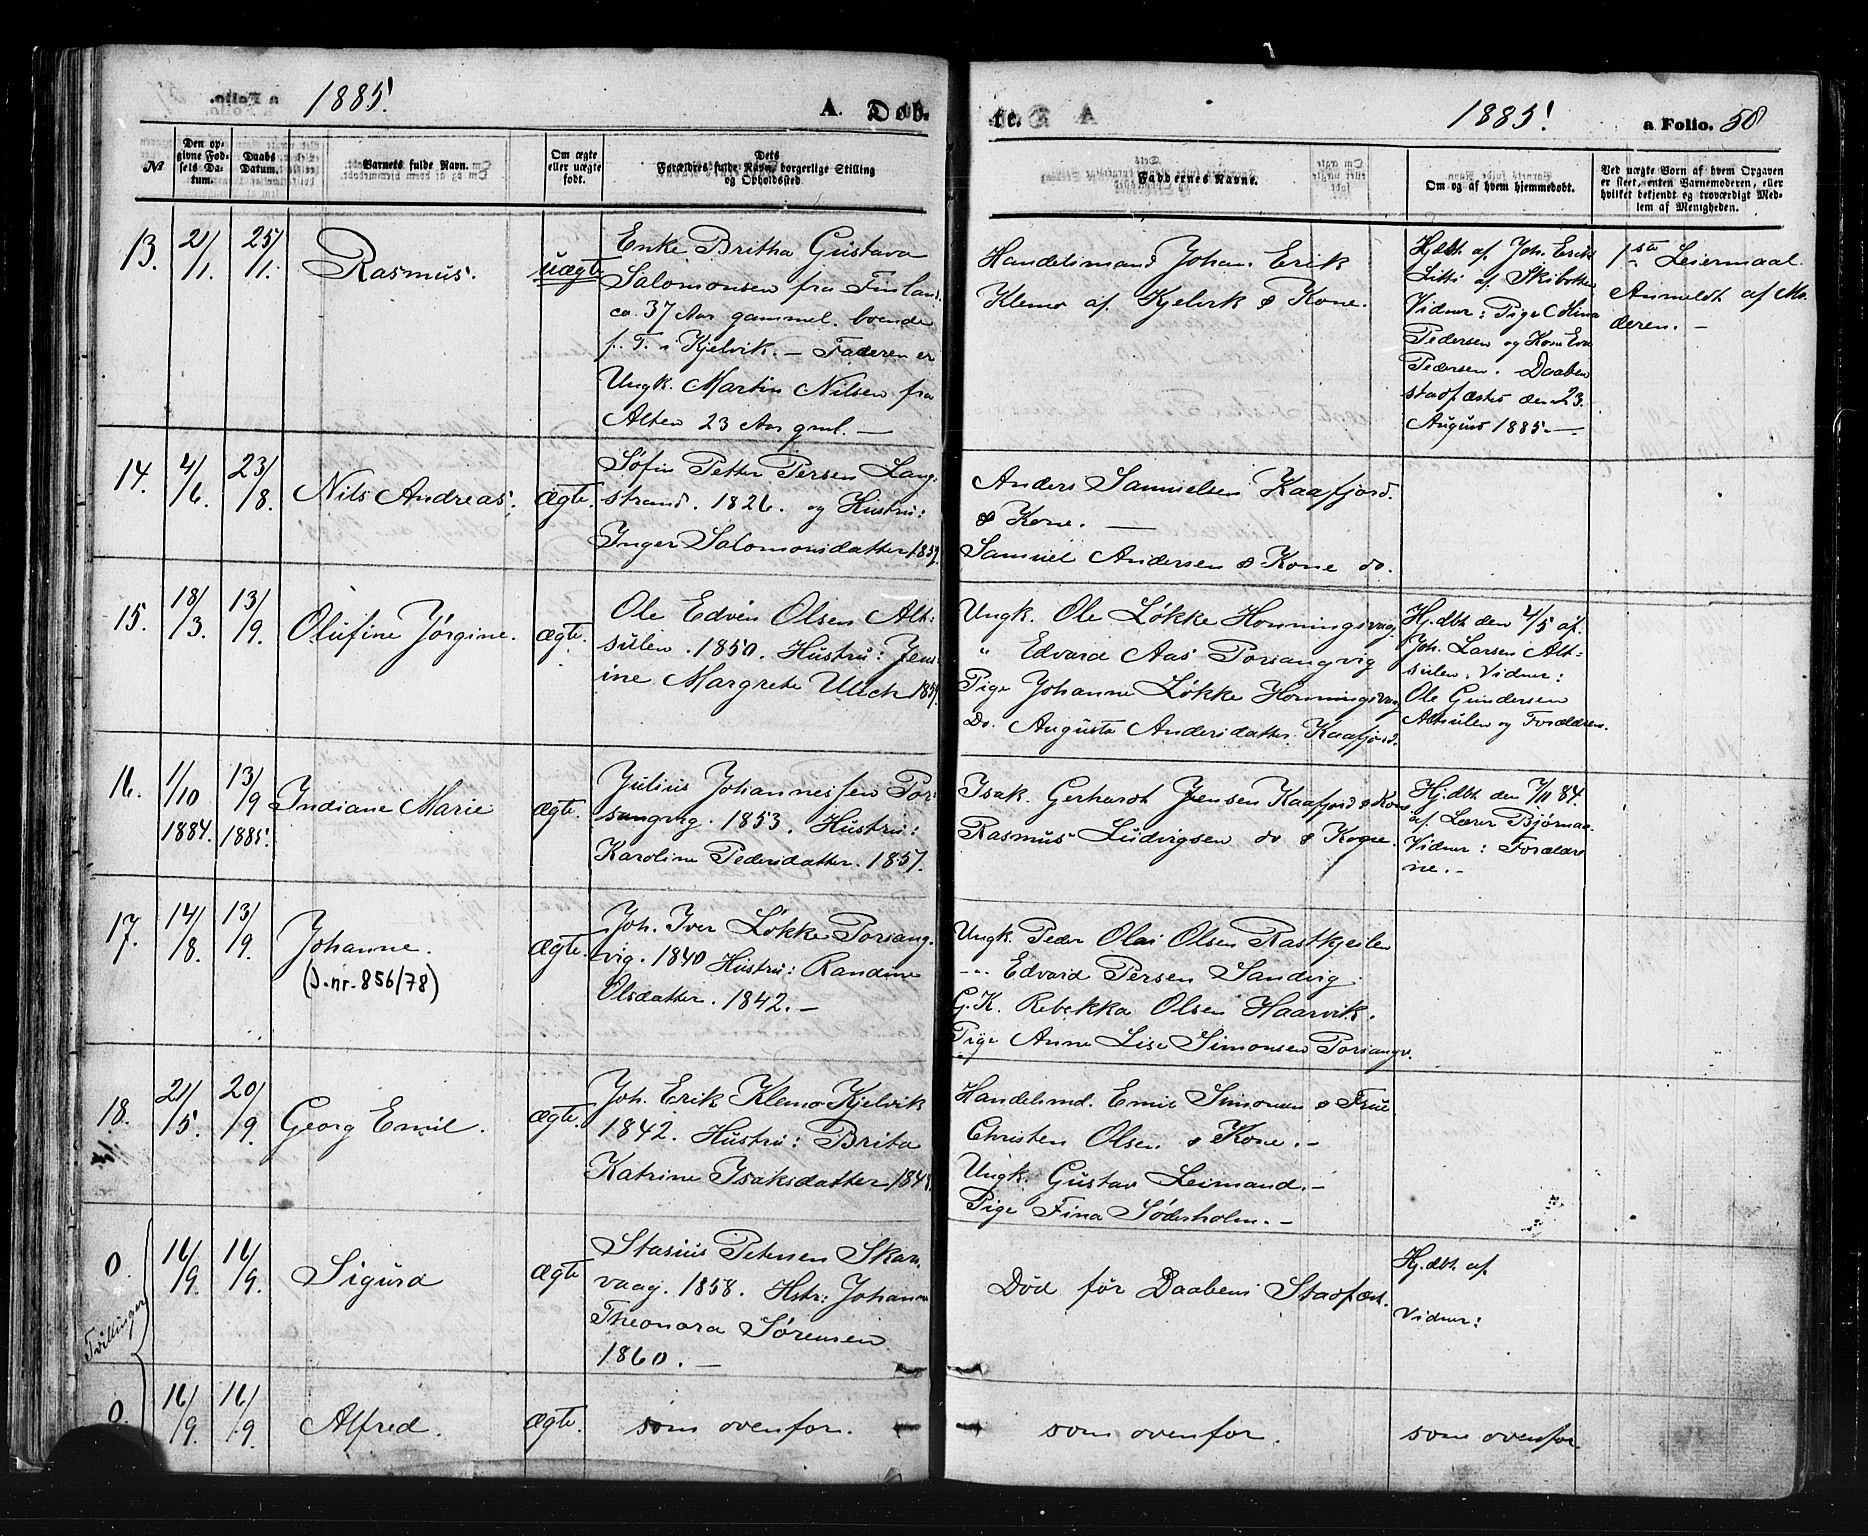 1885.
A. Døb-
te.
1885.
a Folio. 58
№
Den op-
givne Fød-
sels Da-
tum.
Daabs
Datum.
Barnets fulde Navn.
Om ægte
eller uægte
født.
Dets
Forældres fulde Navn, borgerlige Stilling
og Opholdssted
Faddernes Navne.
Om og af hvem hjemmedøbt.
Ved uægte Børn af hvem Opgaven
er skeet, enten Barnemoderen, eller
hvilket bekjendt og troværdigt Med-
lem af Menigheden.
13.
21/1.
25/1.
Rasmus.
uægte
Enke Britha Gustava
Salomonsen fra Finland.
ca. 37 Aar gammel. boende
f. T. i Kjelvik. – Faderen er
Ungk. Martin Nilsen fra
Alten 23 Aar gml. –
Handelsmand Johan Erik
Klemo af Kjelvik & Kone.
Hjdbt. af Joh. Erik
Litti af Skibotten
Vidner: Pige
Pedersen og Kone Eva
Pedersen. Daaben
stadfæstet den 23.
August 1885. –
1ste Leiermaal.
Anmeldt af Mo-
deren. –
14.
4/6.
23/8.
Nils Andreas.
ægte.
Søfin Petter Persen Lang-
strand. 1826. og Hustru:
Inger Salomonsdatter 1839.
Anders Samuelsen Kaafjord.
& Kone. –
Samuel Andersen & Kone do.
15.
18/3.
13/9.
Olufine Jørgine.
ægte.
Ole Edvin Olsen Alt-
sulen. 1850. Hustru: Jens-
ine Margrete Ulich 1859.
Ungk. Ole Løkke Honningsvag.
" Edvard Aas Porsangvig
Pige Johanne Løkke Honningsvag
Do. Augusta Andersdatter Kaafjord.
Hj.dbt. den 4/5 af.
Joh. Larsen Alt-
sulen. Vidner:
Ole Gundersen
Altsulen og Forældrene.
16.
1/10
1884.
13/9
1885.
Indiane Marie
ægte.
Julius Johannessen Por-
sangvig. 1853. Hustru:
Karoline Pedersdatter. 1857.
Isak. Gerhardt Jensen Kaafjord & Kone
Rasmus Ludvigsen do & Kone.
Hj.dbt. den 7/11 84.
af Lærer Bjørnaa.
Vidner: Forældre-
ne. –
17.
14/8.
13/9.
Johanne.
(J.nr. 856/78)
ægte.
Joh. Iver Løkke Porsang-
vig. 1840 Hustru: Randine
Olsdatter. 1842. –
Ungk. Peder Olai Olsen
–"– Edvard Persen Sandvig.
G.K. Rebekka Olsen Haarvik.
Pige Anne Lise Simonsen Porsangv.
18.
21/5.
20/9.
Georg Emil.
ægte.
Joh. Erik Klemo Kjelvik
1842. Hustru: Brita
Katrine Isaksdatter
Handelsmd. Emil Simonsen & Frue
Christen Olsen & Kone. –
Ungk. Gustav Leimand. –
Pige Fina Söderholm. –
Tvillinger
0.
16/9.
16/9.
Sigurd
ægte
Stasius Petersen Skar-
vaag. 1858. Hstr: Johanne
Theonora Sørensen
1860. –
Død før Daabens Stadfæst.
Hj.dbt. af.
Vidner:
0.
16/9.
16/9.
Alfred.
ægte.
som ovenfor.
som ovenfor.
som ovenfor.